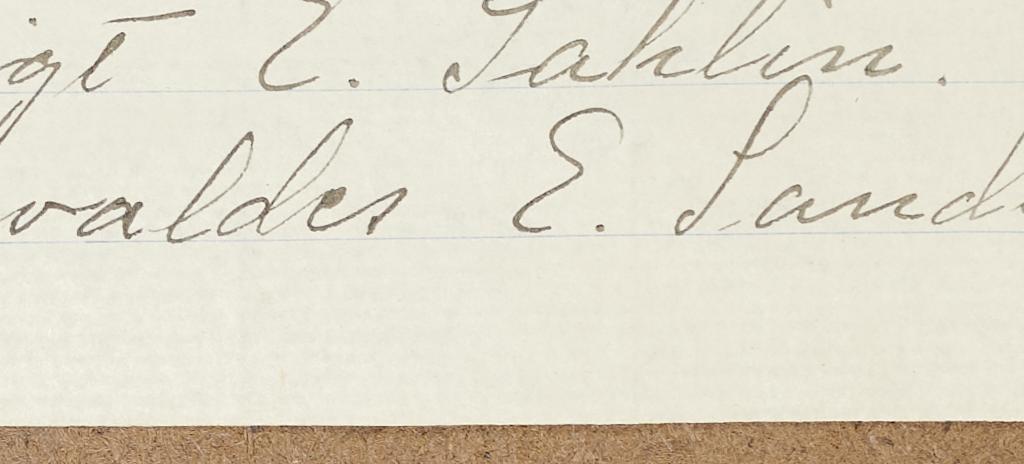 igt E. Sahlin.
valdes E. Sand